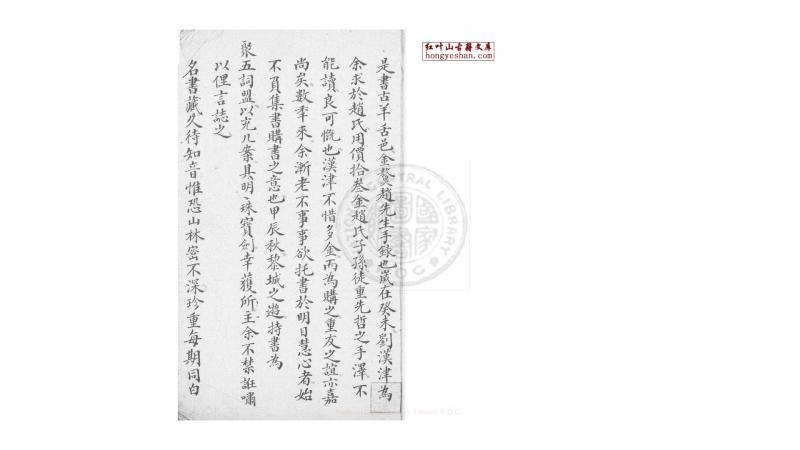 是書古羊舌邑金鰲趙先生手錄也歲在癸未劉漢津為
余求於趙氏用價拾叁金趙氏子孫徒重先哲之手澤不
能讀良可慨也漢津不惜多金而為購之重友之誼亦嘉
尚矣數年來余漸老不事事欲托書於明目慧心者始
不負集書購書之意也甲辰秋黎城之遊持書為
聚五詞盟以充几案具明珠寶劍幸獲所主余不禁誑嘯
以俚言誌之
名書藏久待知音惟恐山林密不深珍重每期同白
红叶山古籍文库
hongyeshan.com
CENTRAL LIBRARY